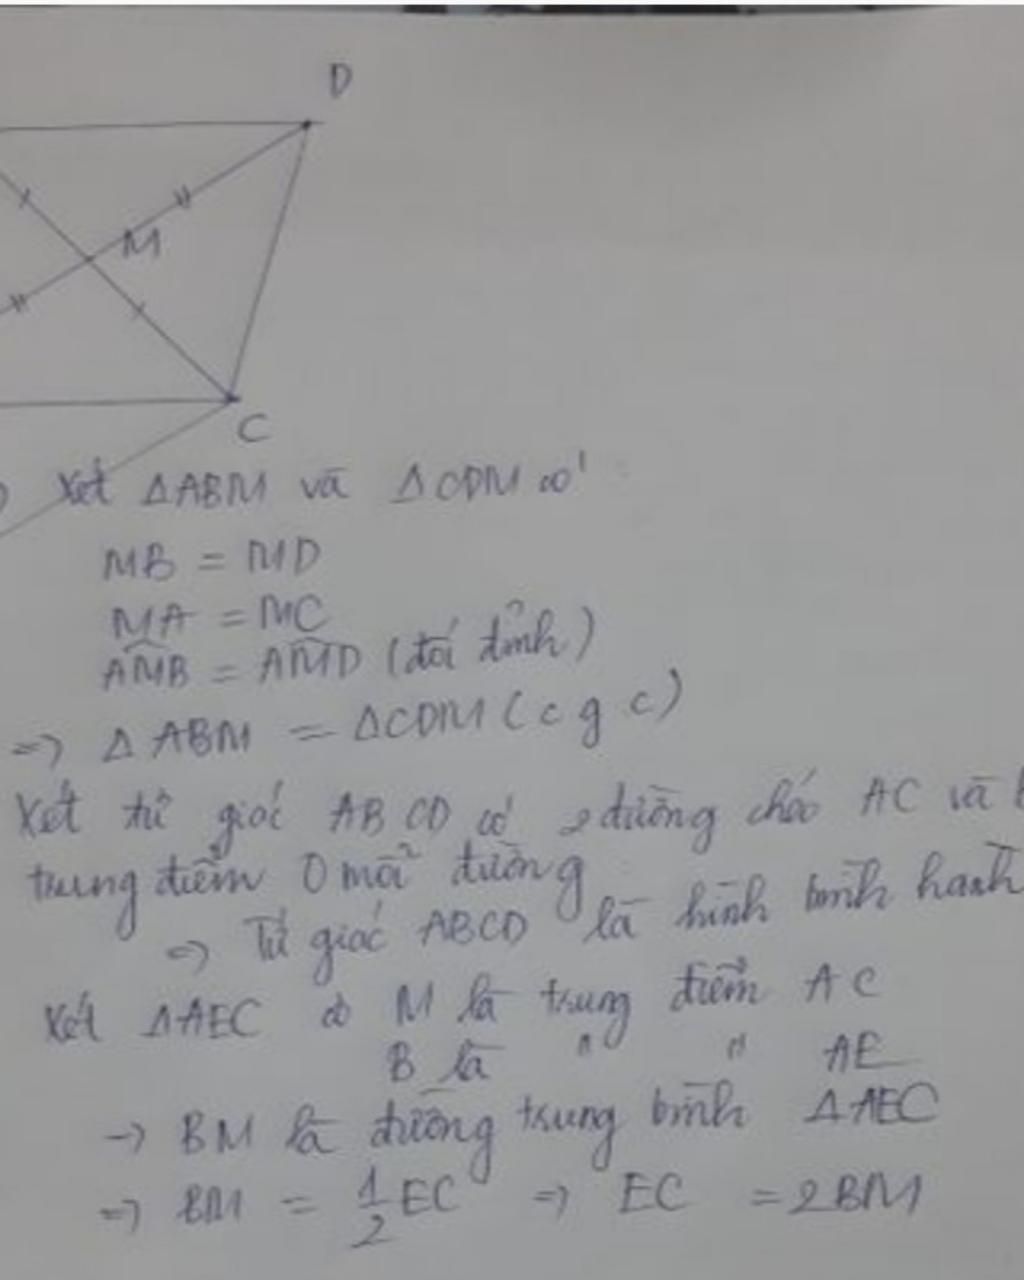 D
M
C
) Xét ΔABM và ΔCDM có
MB = MD
MA = MC
\widehat{AMB} = \widehat{AMD} (đối đỉnh)
=> ΔABM = ΔCDM (c g c)
Xét tứ giác ABCD có 2 đường chéo AC và
trung điểm O mỗi đường
=> Tứ giác ABCD là hình bình hành
Xét ΔAEC có M là trung điểm AC
B là " " AE
-> BM là đường trung bình ΔAEC
=> BM = \frac{1}{2}EC => EC = 2BM